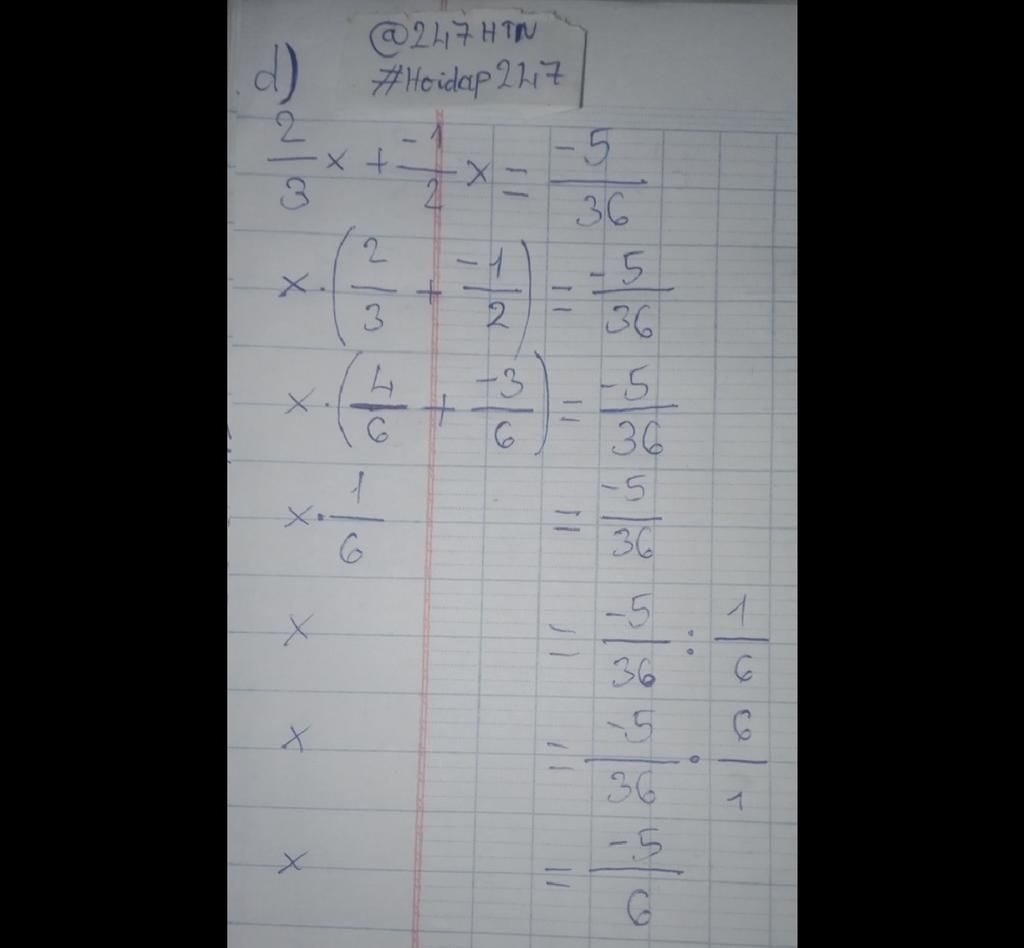 @247HTN
#Hoidap247
d)
2/3 x + -1/2 x = -5/36
x . (2/3 + -1/2) = -5/36
x . (4/6 + -3/6) = -5/36
x . 1/6 = -5/36
x = -5/36 : 1/6
x = -5/36 . 6/1
x = -5/6